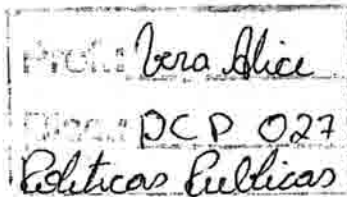 Prof.: Vera Alice
Disc.: DCP 027
Políticas Publicas